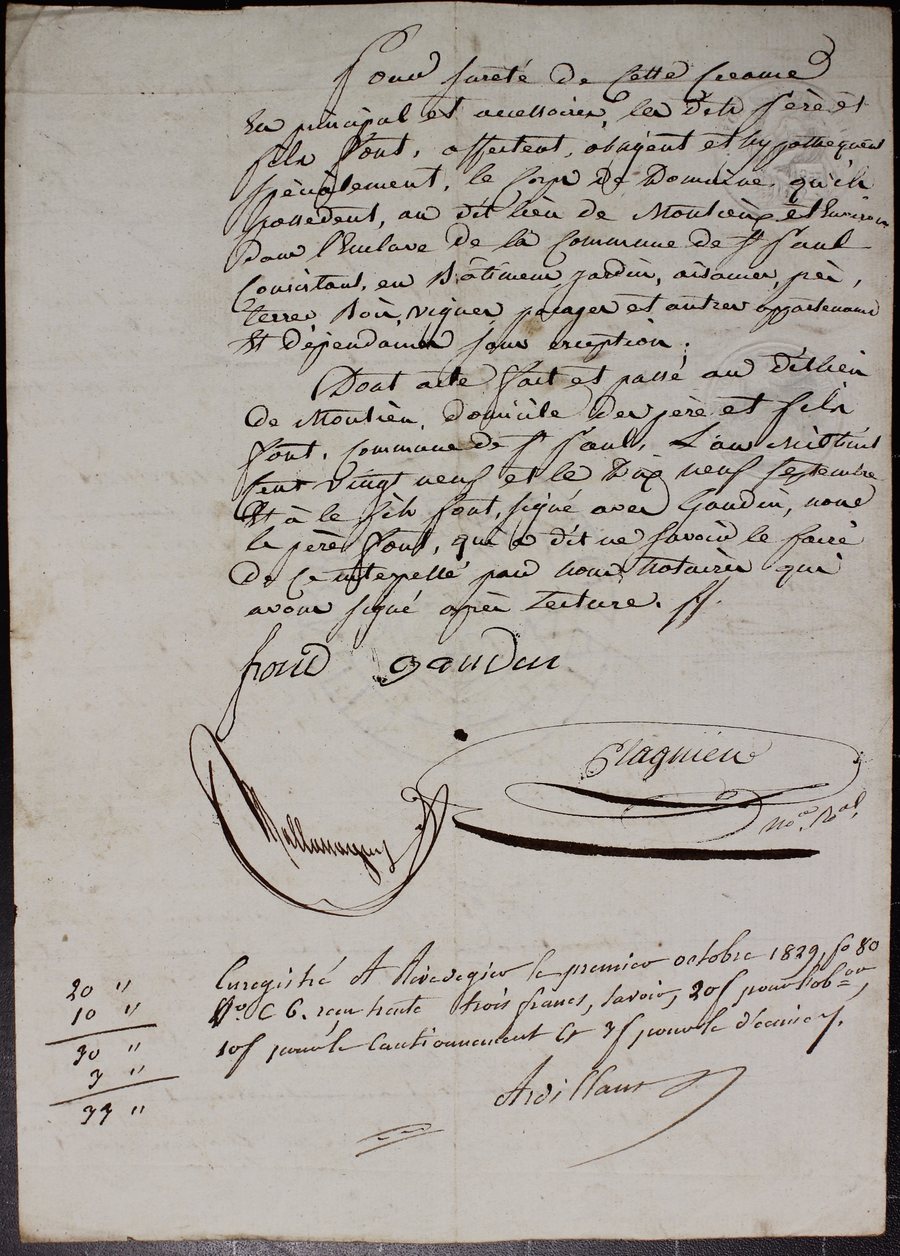 Pour sureté de Cette Creance
En principal et accessoires, les dits pere et
fils Font, affectent, obligent et hypothequent
spécialement, le Corps de Domaine qu'ils
possedent, au dit lieu de et Environs
dans l'Enclave de la Commune de St Paul
Consistant, en Bâtiment, jardin, aisances, près,
terres Bois, vignes pacages et autres appartenances
Et dépendances sans exception.
Dont acte Fait et passé au dit lieu
de domicile des père et fils
Font, commune de St Paul, L'an Mil huit
Cent vingt neuf et le Dix neuf Septembre
Et à le fils Font, signé avec Gaudin, non
le père Font, qui a dit ne savoir le faire
de Ce interpellé par nous Notaires qui
avons signé après Lecture. ff.
gaudin
Plagnieu
nore. Ral.
Enregistré A le premier octobre 1829, fo 80
Vo C 6. recu trente trois francs, savoir, 20f pour l'obon,
10f pour le Cautionnement et 3f pour le décime f.
20 "
10 "
30 "
3 "
33 "